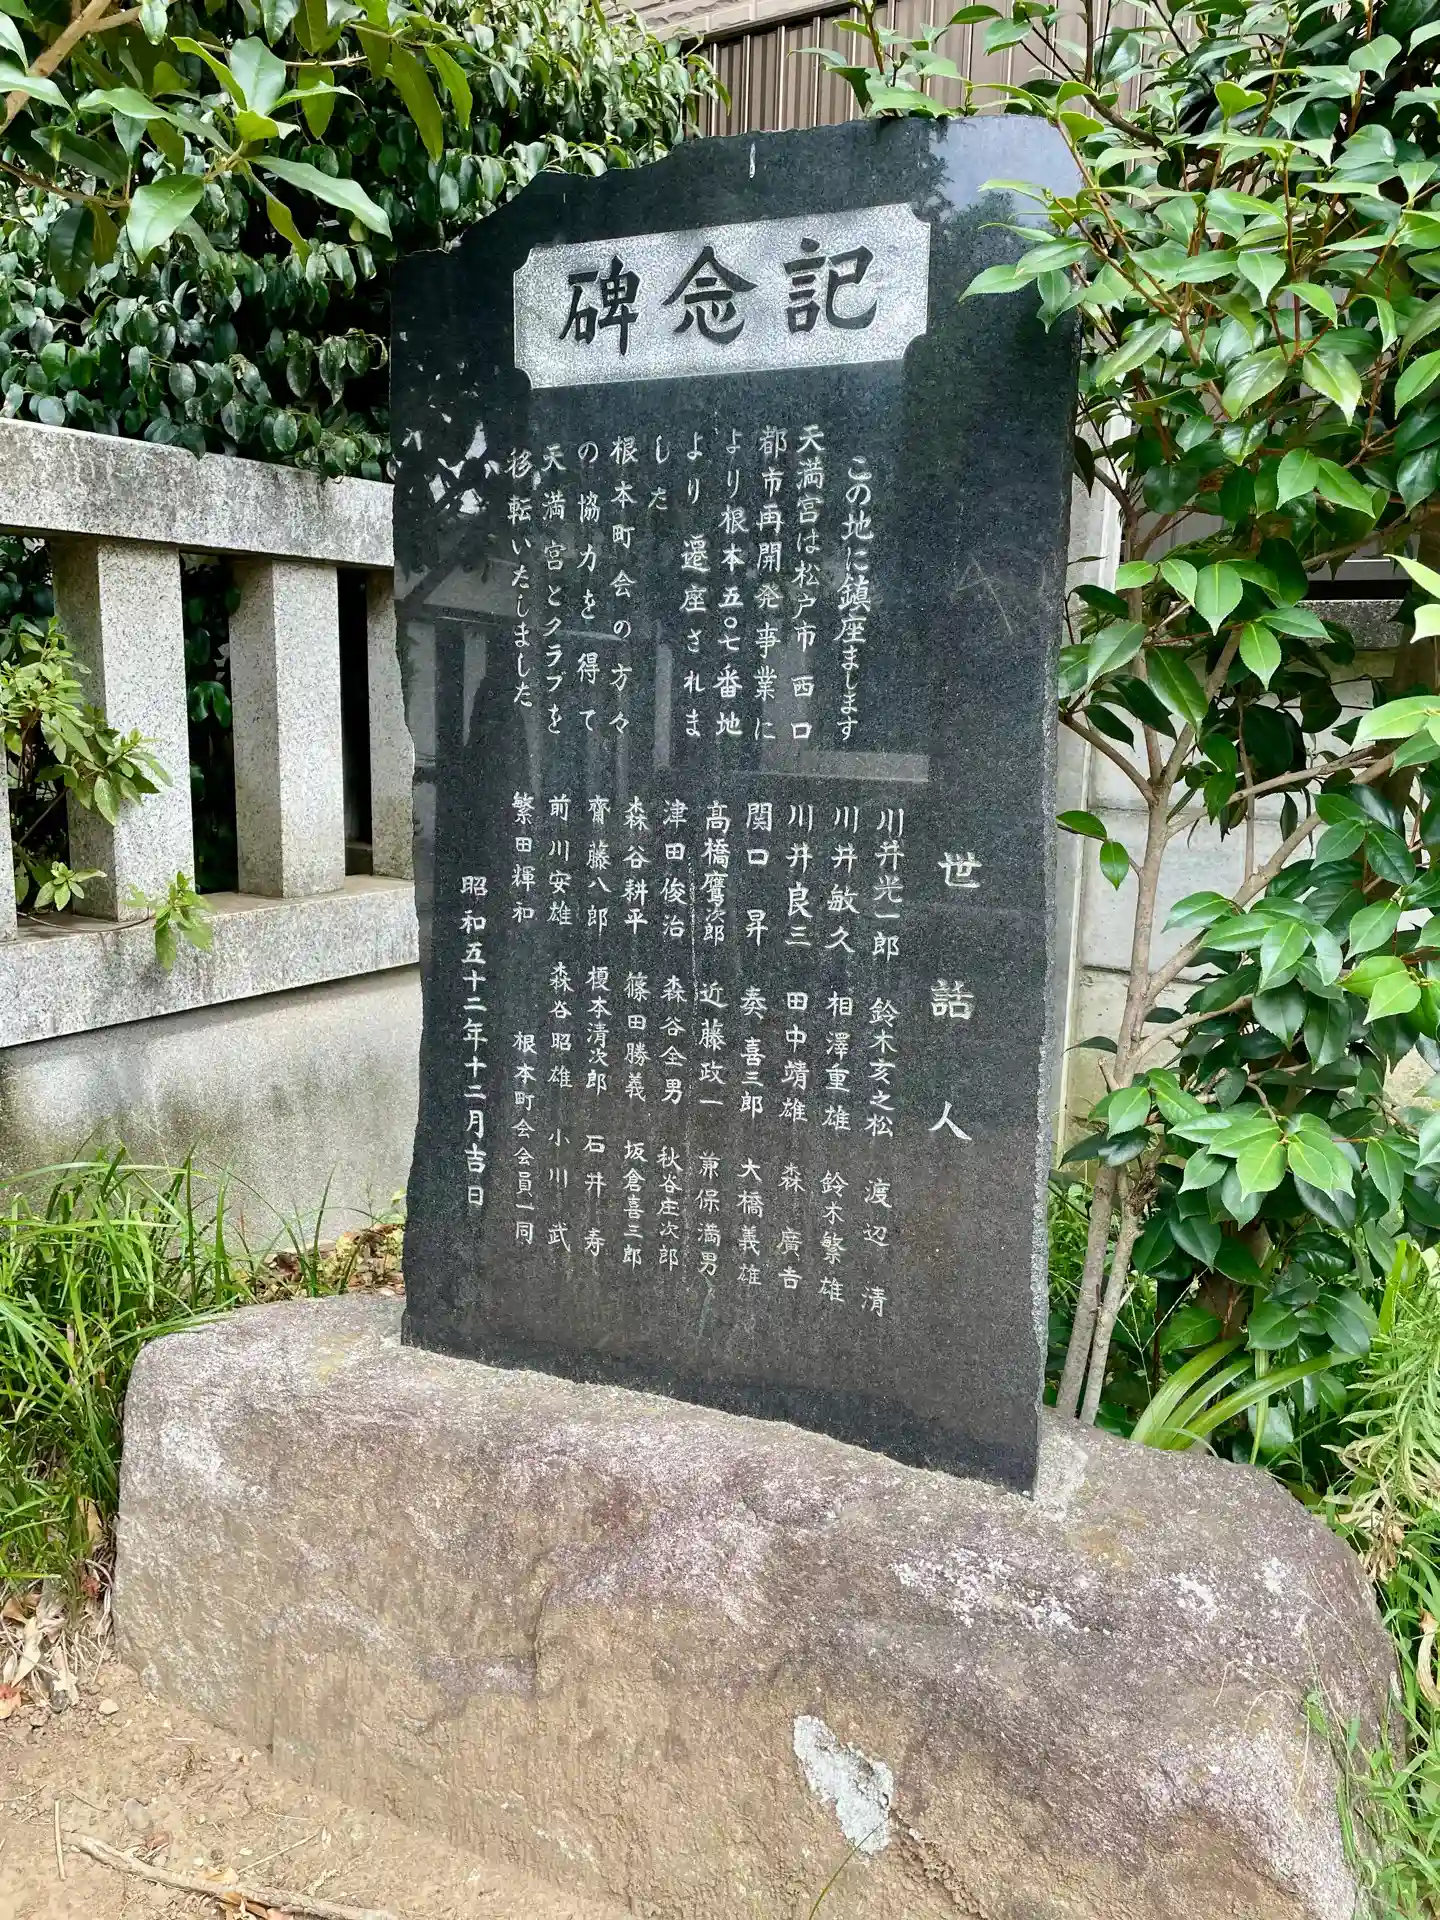 記念碑
この地に鎮座まします
天満宮は松戸市 西口
都市再開発事業に
より根本五〇七番地
より遷座されま
した
根本町会の方々
の協力を得て
天満宮とクラブを
移転いたしました
世話人
川井光一郎 鈴木亥之松 渡辺 清
川井敏久 相澤重雄 鈴木繁雄
川井良三 田中靖雄 森 廣吉
関口 昇 奏 喜三郎 大橋義雄
高橋鷹次郎 近藤政一 兼保満男
津田俊治 森谷全男 秋谷庄次郎
森谷耕平 篠田勝義 坂倉喜三郎
齋藤八郎 榎本清次郎 石井 寿
前川安雄 森谷昭雄 小川 武
繁田輝和 根本町会会員一同
昭和五十二年十二月吉日